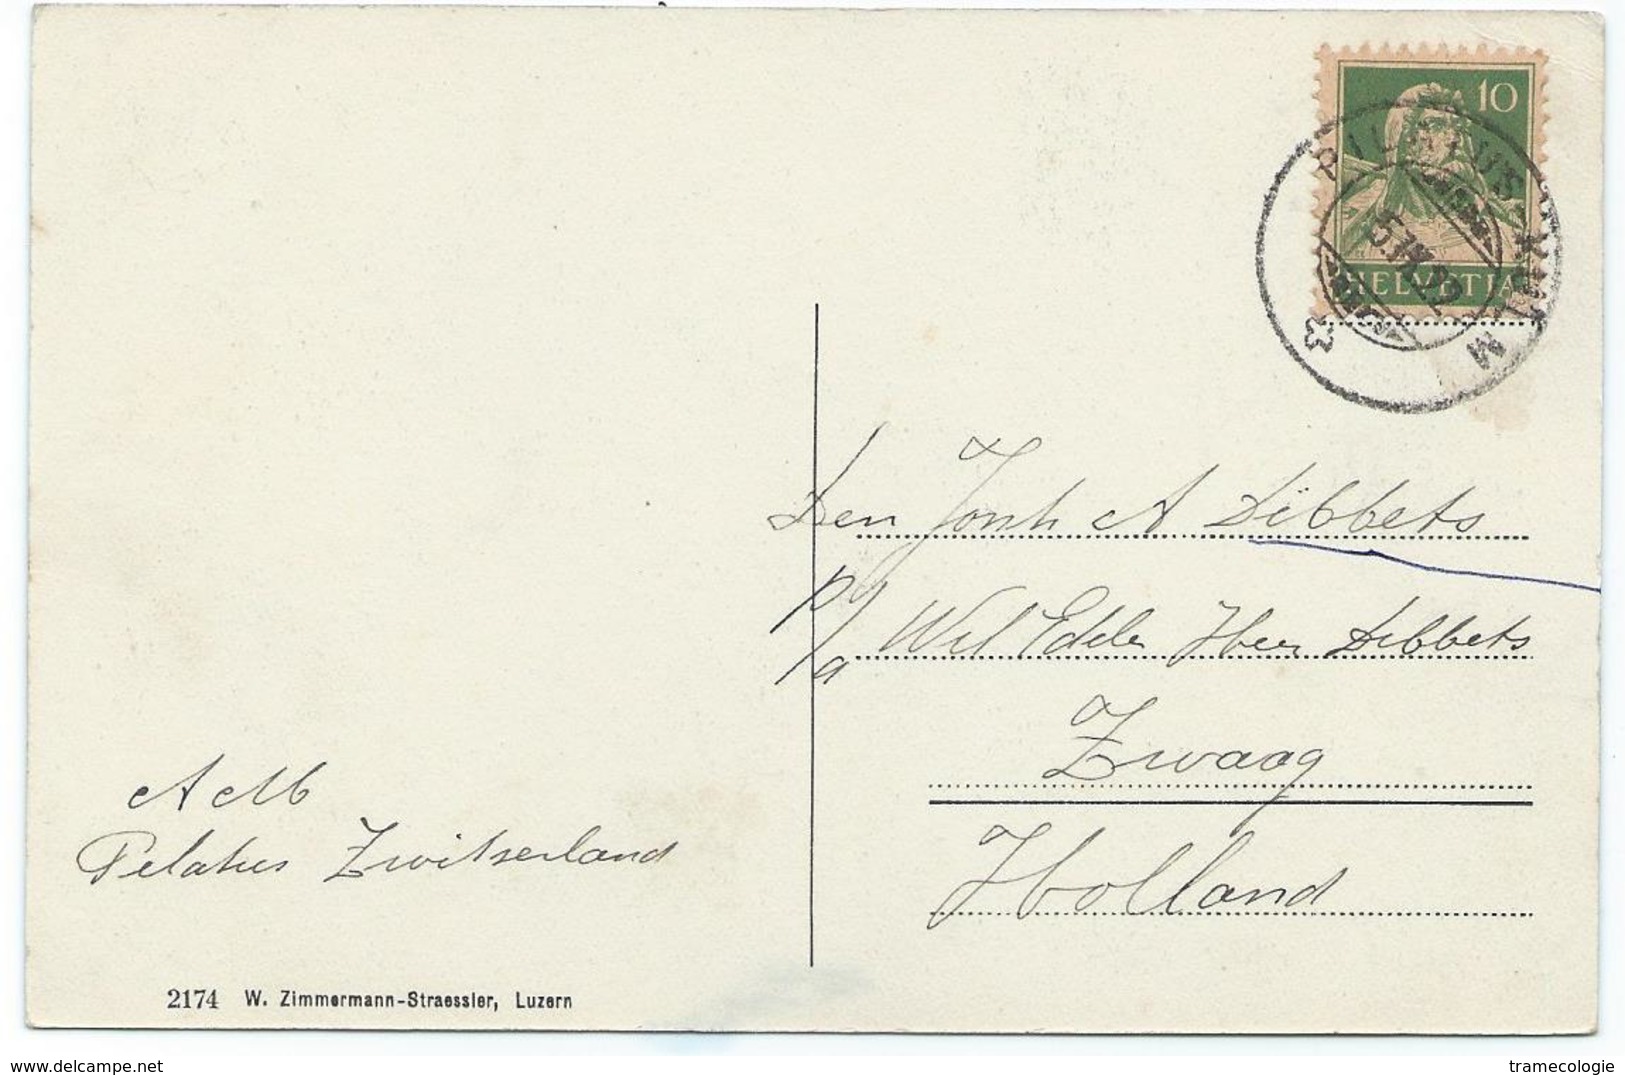 10
HELVETIA
PILATUS-KULM
Den Jonh A Dibbets
p/a Wel Edele Heer Dibbets
Zwaag
Holland
A Mb
Pelatus Zwitserland
2174 W. Zimmermann-Straessler, Luzern
www.delcampe.net
tramecologie